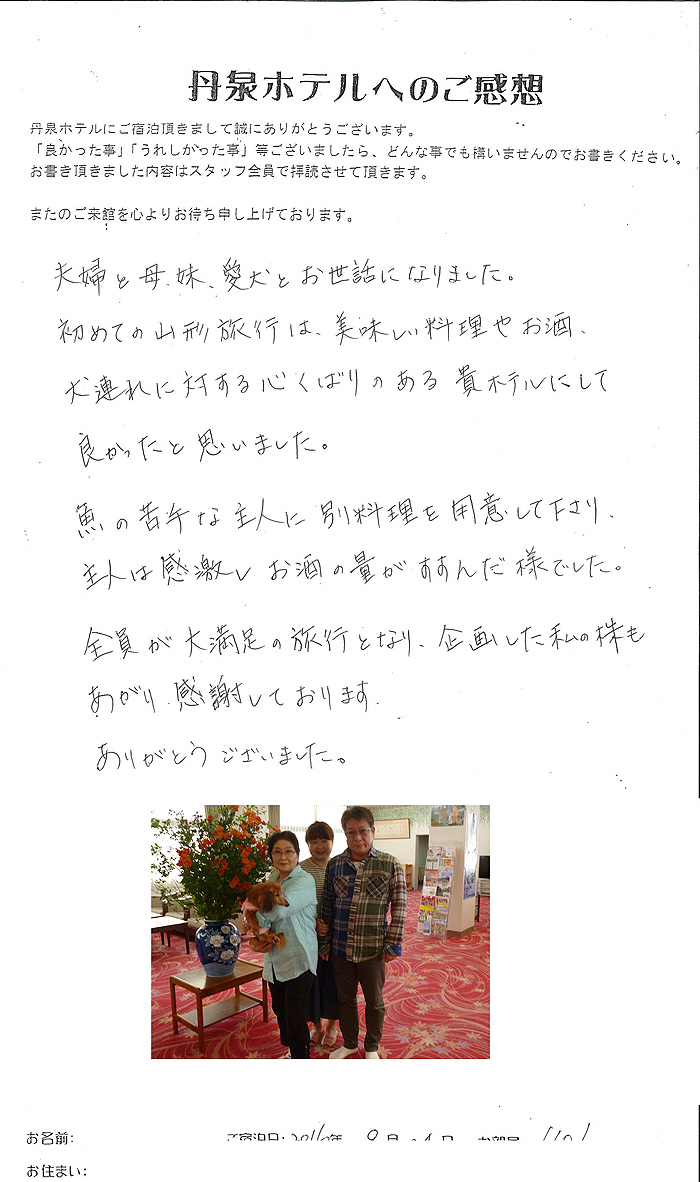 丹泉ホテルへのご感想
丹泉ホテルにご宿泊頂きまして誠にありがとうございます。
「良かった事」「うれしかった事」等ございましたら、どんな事でも構いませんのでお書きください。
お書き頂きました内容はスタッフ全員で拝読させて頂きます。
またのご来館を心よりお待ち申し上げております。
夫婦と母、妹、愛犬とお世話になりました。
初めての山形旅行は、美味しい料理やお酒、
犬連れに対する心くばりのある貴ホテルにして
良かったと思いました。
魚の苦手な主人に別料理を用意して下さり、
主人は感激しお酒の量がすすんだ様でした。
全員が大満足の旅行となり、企画した私の株も
あがり感謝しております。
ありがとうございました。
お名前:
ご宿泊日:
お住まい: